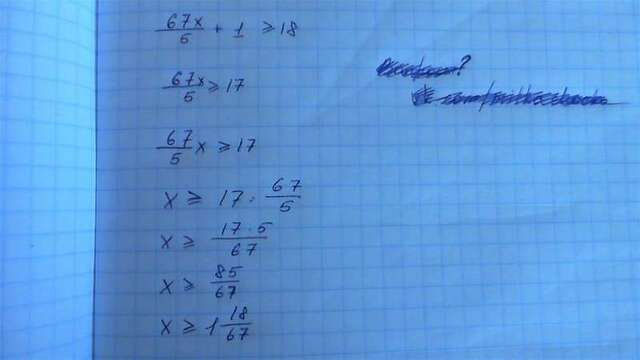 67x/5 + 1 ≥ 18
67x/5 ≥ 17
67/5 x ≥ 17
x ≥ 17 : 67/5
x ≥ 17·5/67
x ≥ 85/67
x ≥ 1 18/67
?